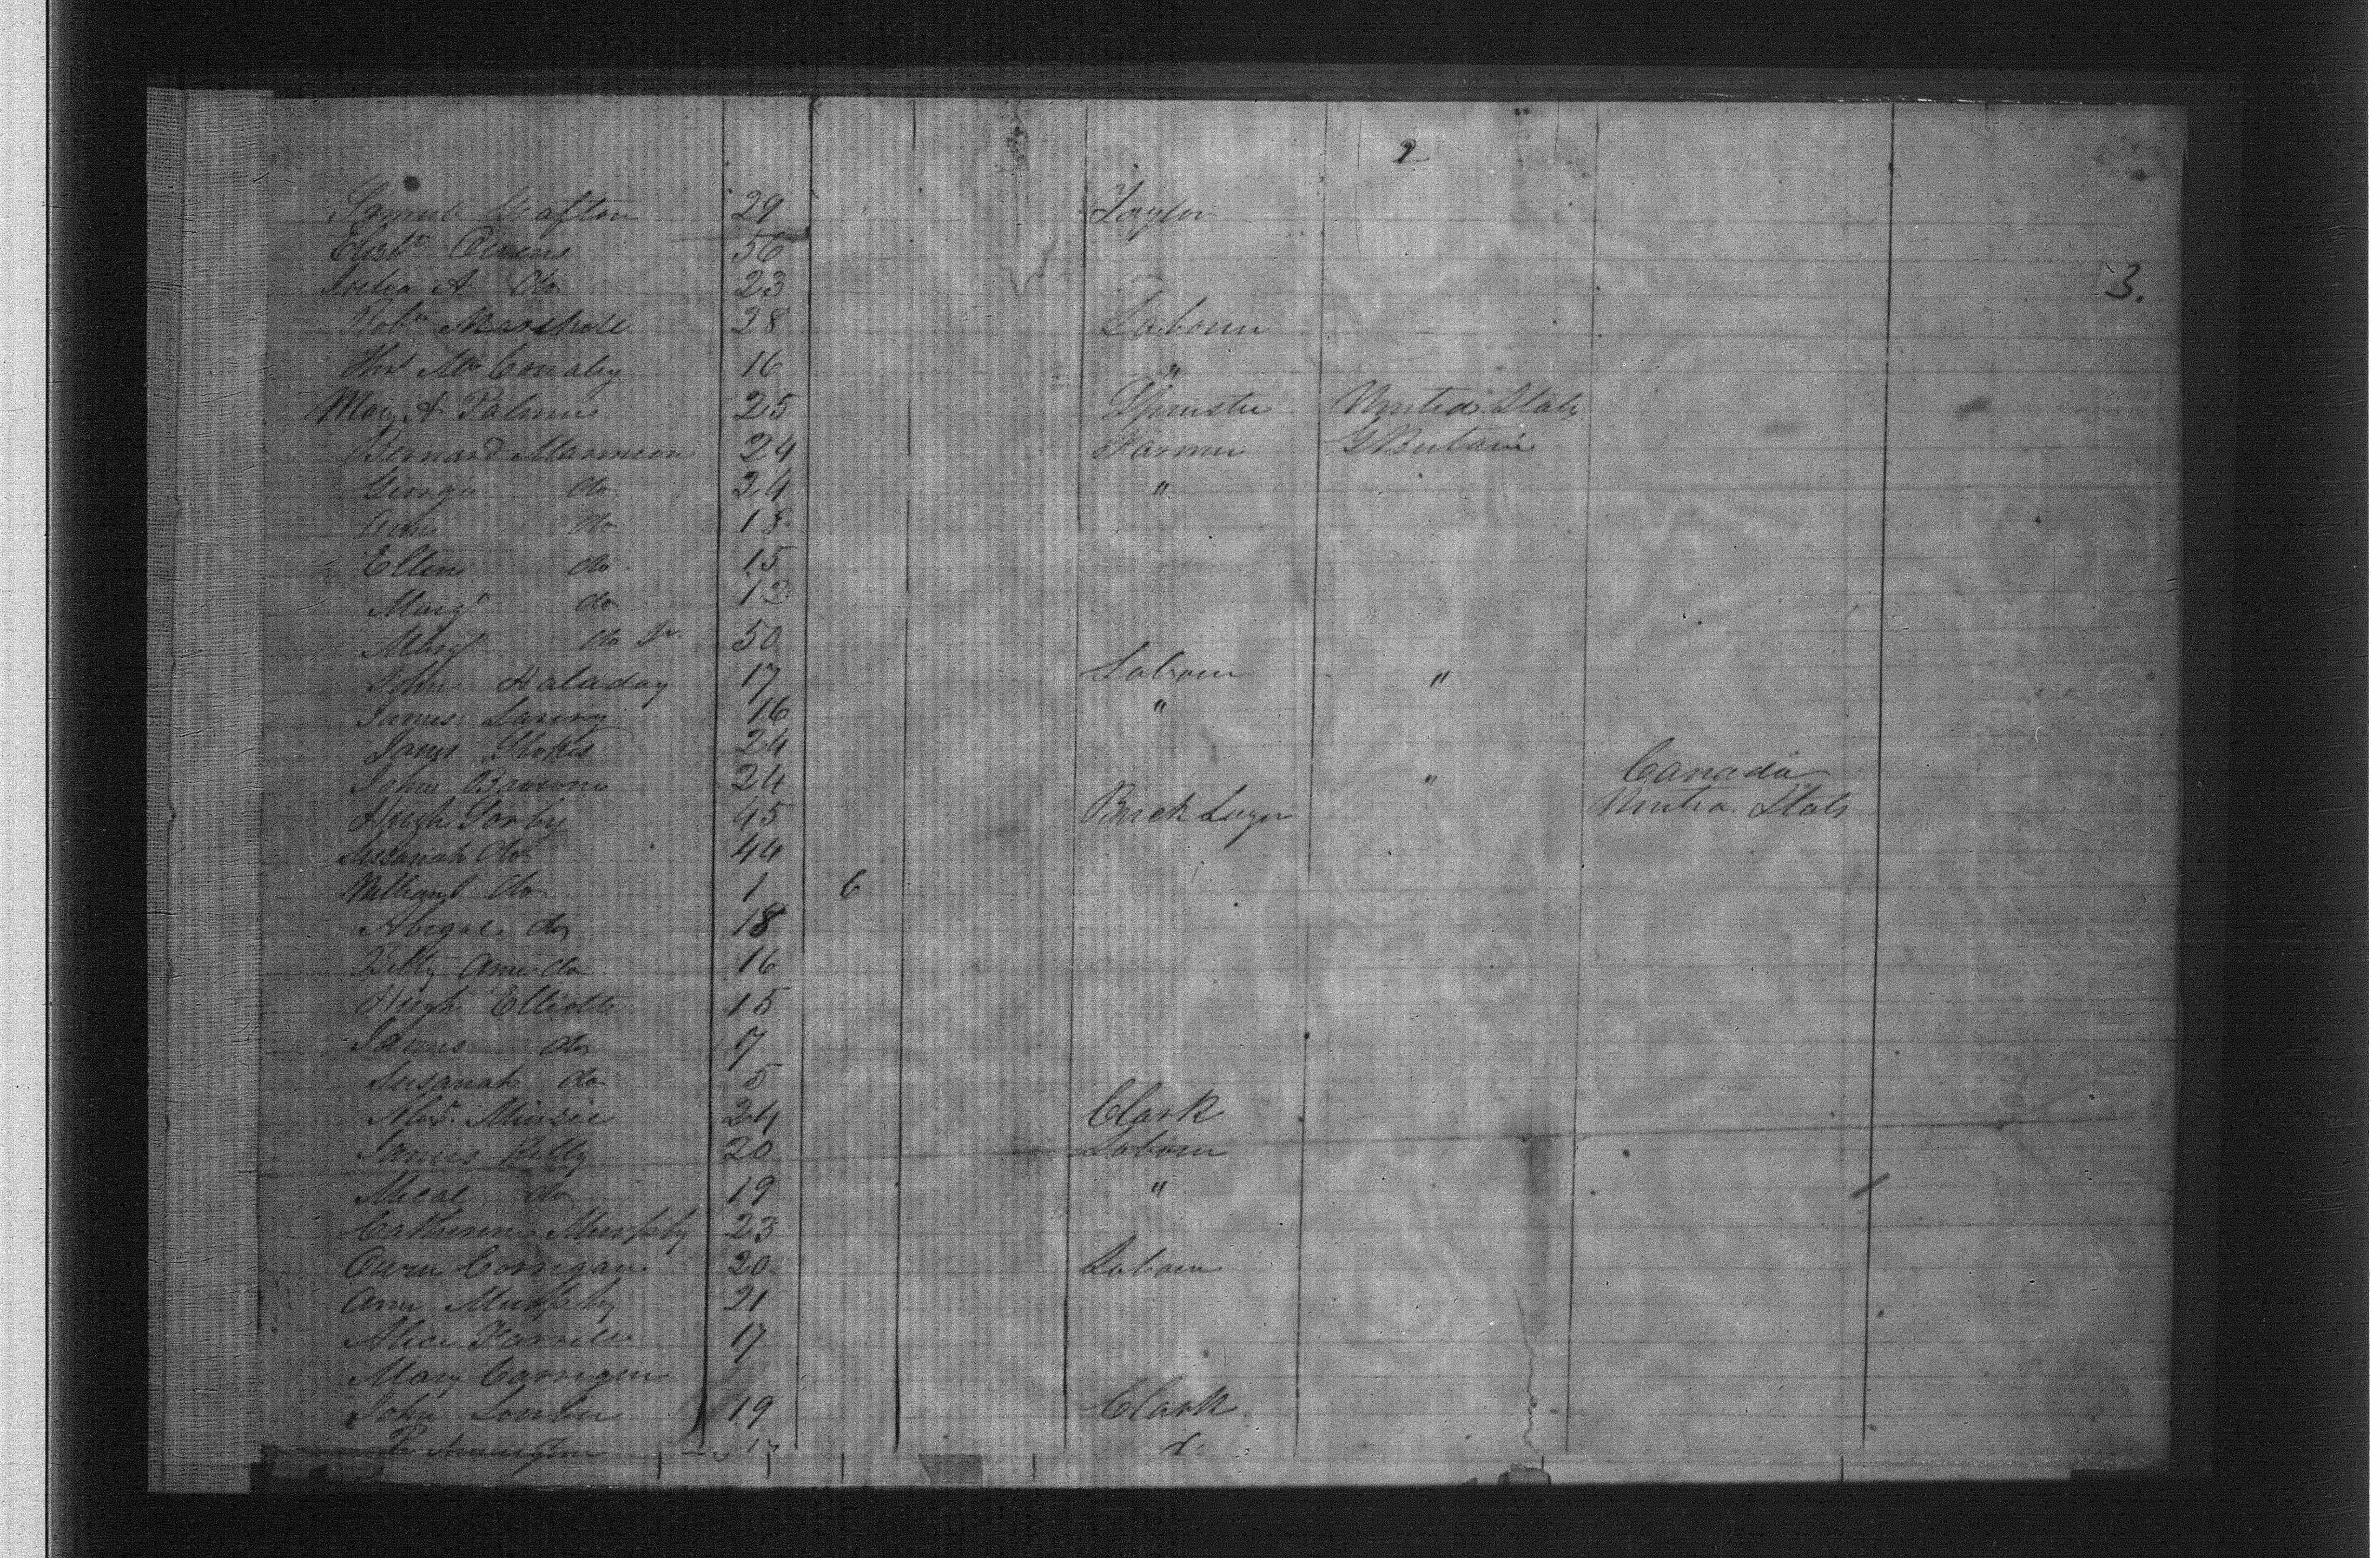 2
3.
Samuel Grafton 29 Taylor
Elizbth Owens 56
Julia A do 23
Robt Marshall 28 Labourr
Thos McConaley 16 "
Mary A Palmer 25 Spinster United States
Bernard Marmion 24 Farmer G Britain
George do 24 "
Ann do 18
Ellen do 15
Margt do 12
Margt do Sr 50
John Haladay 17 Labourr "
James 16 "
James Stokes 24
John Browne 24 " Canada
Hugh Gorby 45 Brick Layer United States
Susanah do 44
William do 1 6
Abigal do 18
Betty Ann do 16
Hugh Elliott 15
James do 7
Susanah do 5
Alexr. Minzie 24 Clark
James Kelly 20 Labourr
Mical do 19 "
Catherine Murphy 23
Owen Corrigan 20 Labourr
Ann Murphy 21
Alice Farrell 17
Mary Corrigan
John 19 Clark